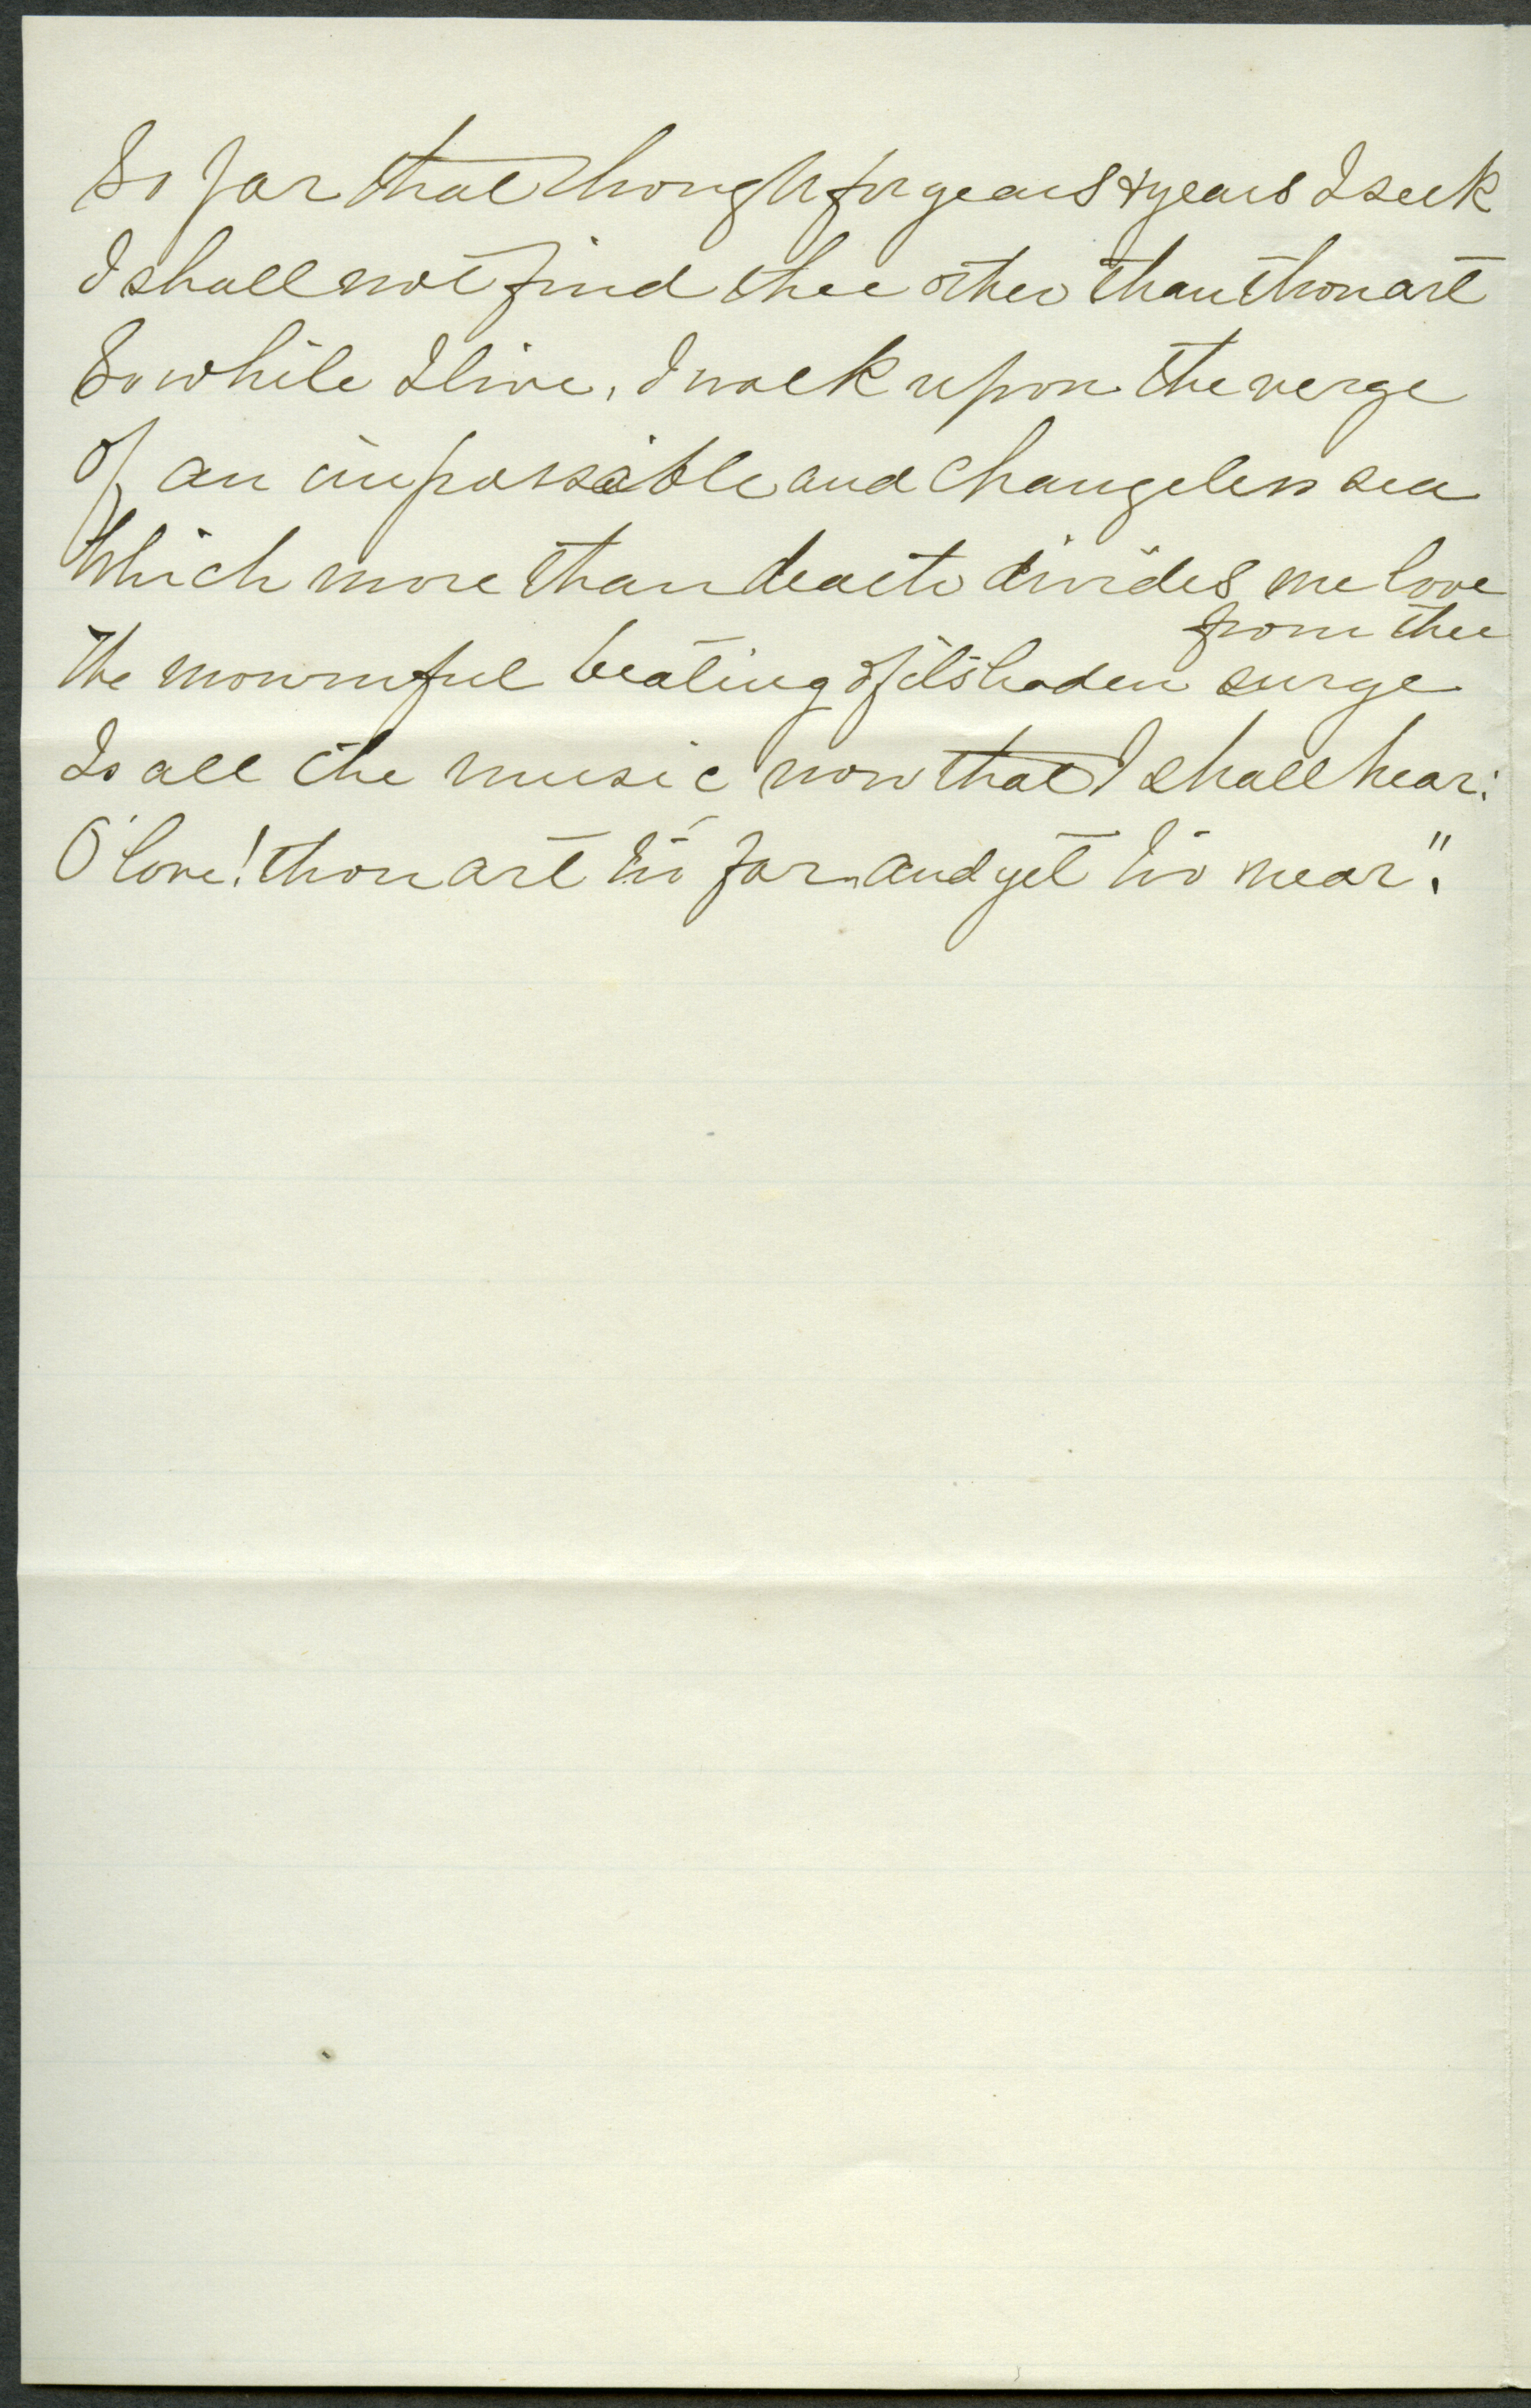 So far that though for years & years I seek
I shall not find thee other than thou art
So while I live, I walk upon the verge
Of an impassable and changeless sea
Which more than death divides me love
from thee
The mournful beating of its leaden surge
Is all the music now that I shall hear:
O love! thou art too far and yet too near".